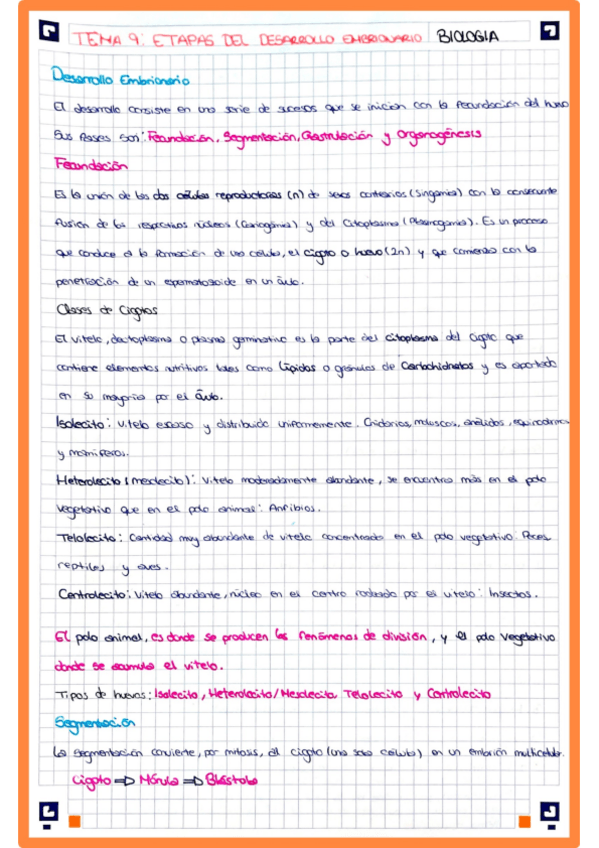 TEMA 9: ETAPAS DEL DESARROLLO EMBRIONARIO BIOLOGIA
Desarrollo Embrionario
El desarrollo consiste en una serie de sucesos que se inician con la fecundación del huevo
Sus fases son: Fecundación, Segmentación, Gastrulación y Organogénesis
Fecundación
Es la unión de las dos células reproductoras (n) de sexos contrarios (Singamia) con la consecuente
fusión de los respectivos núcleos (Cariogamia) y del Citoplasma (Plasmogamia). Es un proceso
que conduce a la formación de una célula, el cigoto o huevo (2n) y que comienza con la
penetración de un espermatozoide en un óvulo.
Clases de Cigotos
El vitelo, deutoplasma o plasma germinativo es la parte del citoplasma del cigoto que
contiene elementos nutritivos tales como Lípidos o gránulos de Carbohidratos y es aportado
en su mayoría por el óvulo.
Isolecito: vitelo escaso y distribuido uniformemente. Cnidarios, moluscos, anélidos, equinodermos
y mamíferos.
Heterolecito (mesolecito): Vitelo moderadamente abundante, se encuentra más en el polo
vegetativo que en el polo animal: Anfibios.
Telolecito: Cantidad muy abundante de vitelo concentrado en el polo vegetativo. Peces,
reptiles y aves.
Centrolecito: Vitelo abundante, núcleo en el centro rodeado por el vitelo: Insectos.
El polo animal, es donde se producen los fenómenos de división, y el polo vegetativo
donde se acumula el vitelo.
Tipos de huevos: Isolecito, Heterolecito/Mesolecito, Telolecito y Centrolecito
Segmentación
La segmentación convierte, por mitosis, al cigoto (una sola célula) en un embrión multicelular.
Cigoto ⇒ Mórula ⇒ Blástula